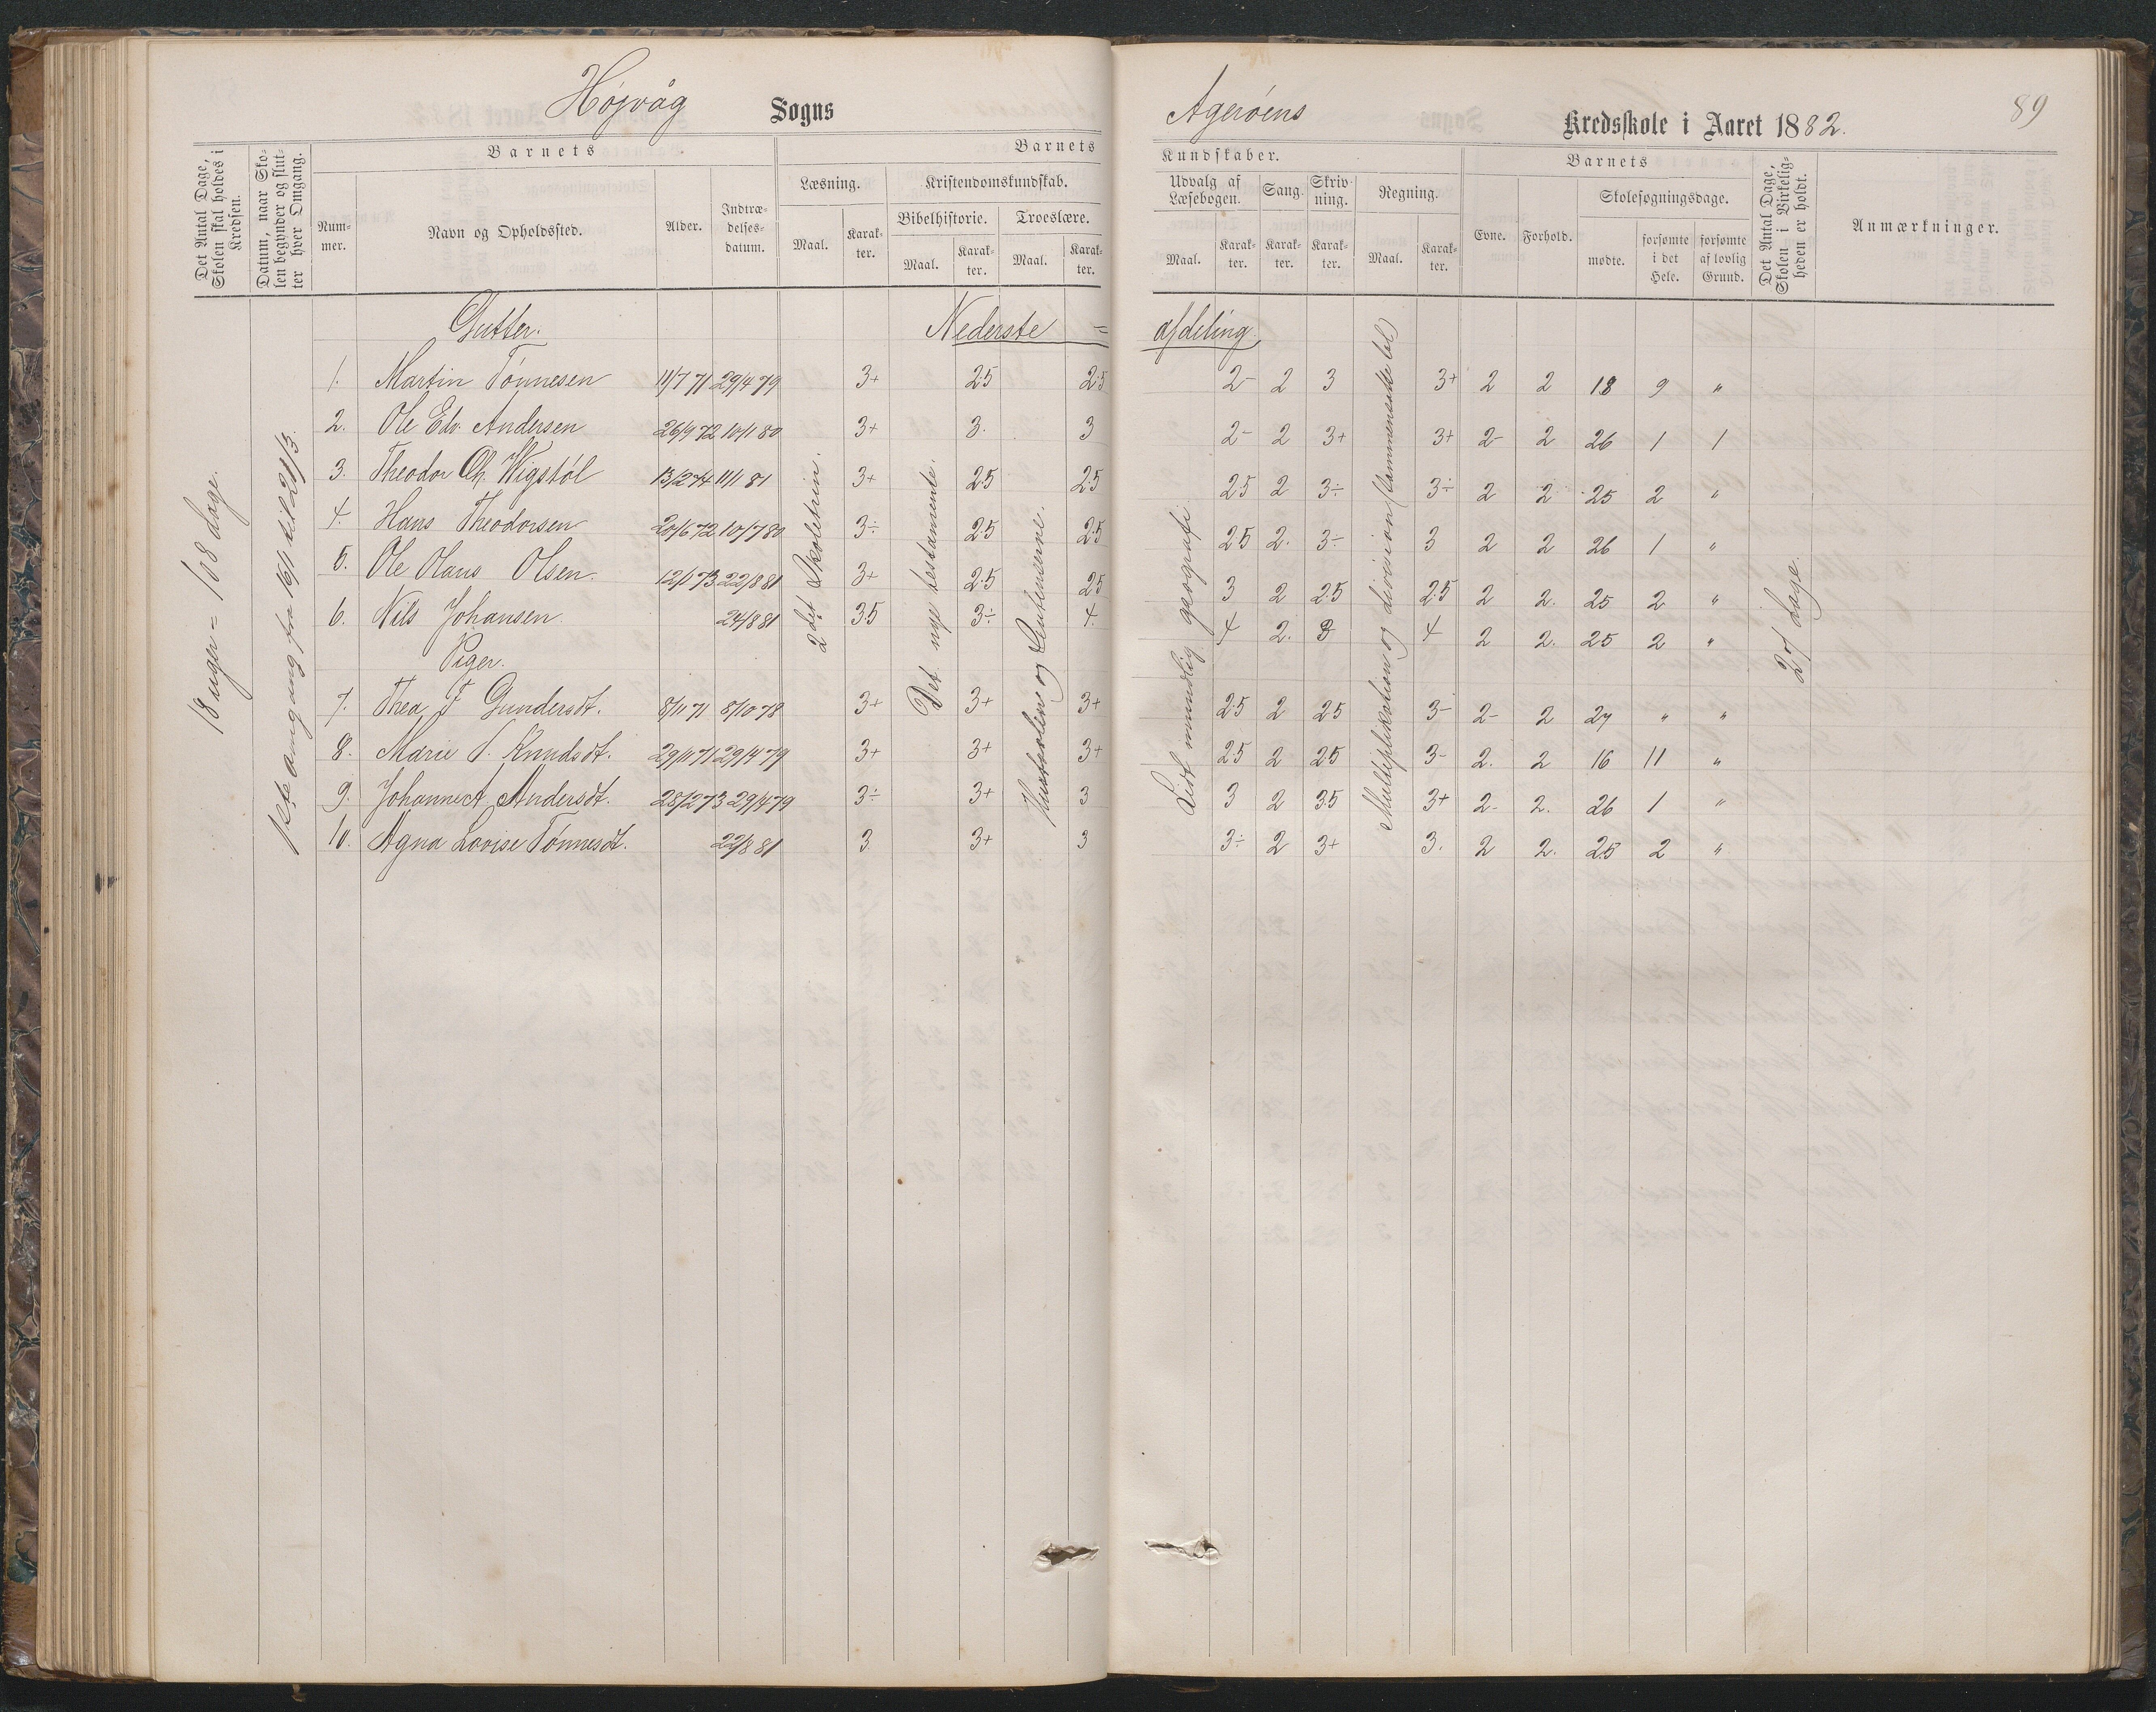 Højvåg Sogns
Agerøens Kredsskole i Aaret 1882.
89
Det Antal Dage, Skolen skal holdes i Kredsen.
Datum, naar Skolen begynder og slutter hver Omgang.
Barnets
Nummer.
Navn og Opholdssted.
Alder.
Indtrædelsesdatum.
Barnets
Læsning.
Maal.
Karakter.
Kristendomskundskab.
Bibelhistorie.
Maal.
Karakter.
Troeslære.
Maal.
Karakter.
Kundskaber.
Udvalg af Læsebogen.
Maal.
Karakter.
Sang.
Karakter.
Skrivning.
Karakter.
Regning.
Maal.
Karakter.
Barnets
Evne.
Forhold.
Skolesøgningsdage.
mødte.
forsømte i det Hele.
forsømte af lovlig Grund.
Det Antal Dage, Skolen i Virkeligheden er holdt.
Anmærkninger.
Gutter. Nederste = afdeling
1. Martin Tønnesen 11/7 71 29/4 79 3+ 2.5 2.5 2- 2 3 3+ 2 2 18 9 "
2. Ole Edv. Andersen 26/9 72 10/1 80 3+ 3. 3 2- 2 3+ 3+ 2- 2 26 1 1
3. Theodor Ch. Wigstøl 13/2 74 11/1 81 3+ 2.5 2.5 2.5 2 3÷ 3÷ 2 2 25 2 "
4. Hans Theodorsen 20/6 72 10/7 80 3÷ 2.5 2.5 2.5 2. 3÷ 3 2 2 26 1 "
5. Ole Olaus Olsen. 12/1 73 22/8 81 3+ 2.5 2.5 3 2 2.5 2.5 2 2. 25 2 "
6. Nils Johansen 24/8 81 3.5 3÷ 4. 4 2. 3 4 2 2. 25 2 "
Piger.
7. Thea F. Gundersdt. 8/11 71 8/10 78 3+ 3+ 3+ 2.5 2 2.5 3- 2- 2 27 " "
8. Marie T. Knudsdt. 29/11 71 29/4 79 3+ 3+ 3+ 2.5 2 2.5 3- 2. 2 16 11 "
9. Johanne A. Andersdt. 28/2 73 29/4 79 3÷ 3+ 3 3 2 3.5 3+ 2- 2. 26 1 "
10. Agna Lovise Tønnesdt. 22/8 81 3. 3+ 3 3÷ 2 3+ 3. 2 2. 25 2 "
18 uger = 108 dage.
1ste omgang fra 16/1 til 21/3.
2det Skoletrin.
Det nye testamente.
Hustavlen og Sentenserne.
Lidt mundtlig geografi
Multiplikation og division
27 dage.